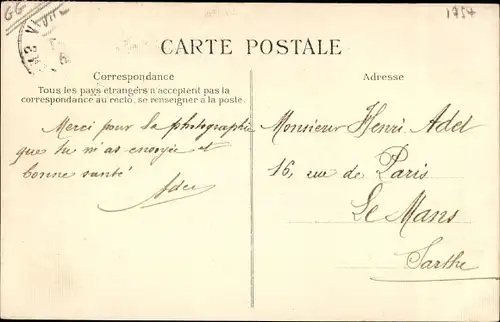 GG
1754
CARTE POSTALE
Correspondance
Tous les pays étrangers n'acceptent pas la
correspondance au recto, se renseigner à la poste.
Merci pour la photographie
que tu m'as envoyée et
bonne santé
Adresse
Monsieur Henri Adet
16, rue de Paris
Le Mans
Sarthe